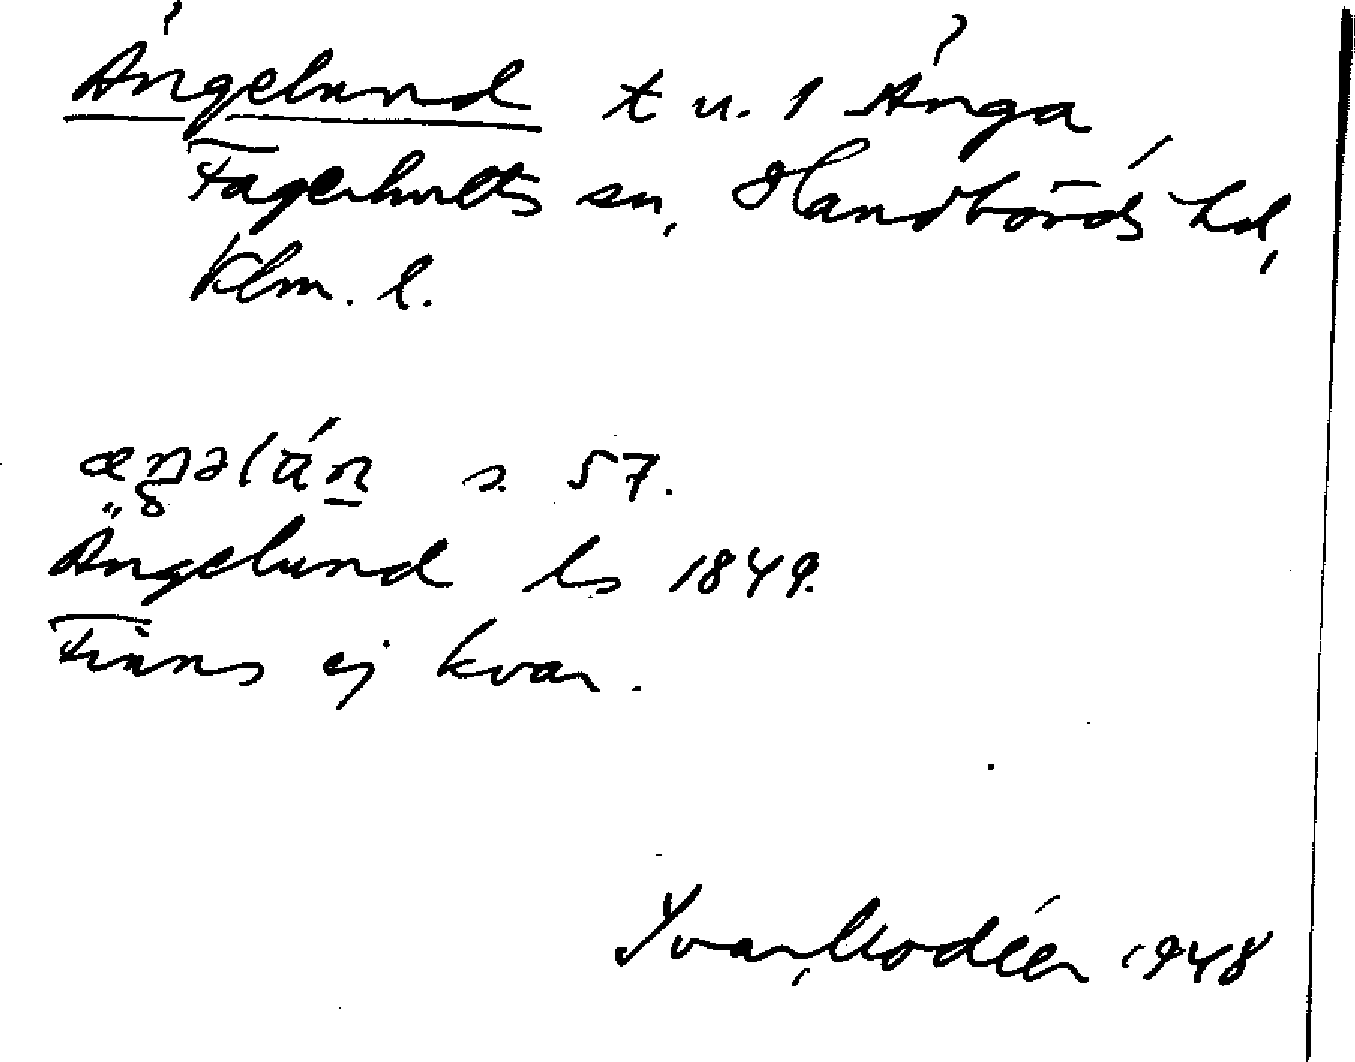 Ängelund t u. 1 Änga,
Fagerhults sn, Handbörds hd,
Klm. l.
s. 57.
Ängelund ls 1849.
Finns ej kvar.
Ivar Modéer 1948